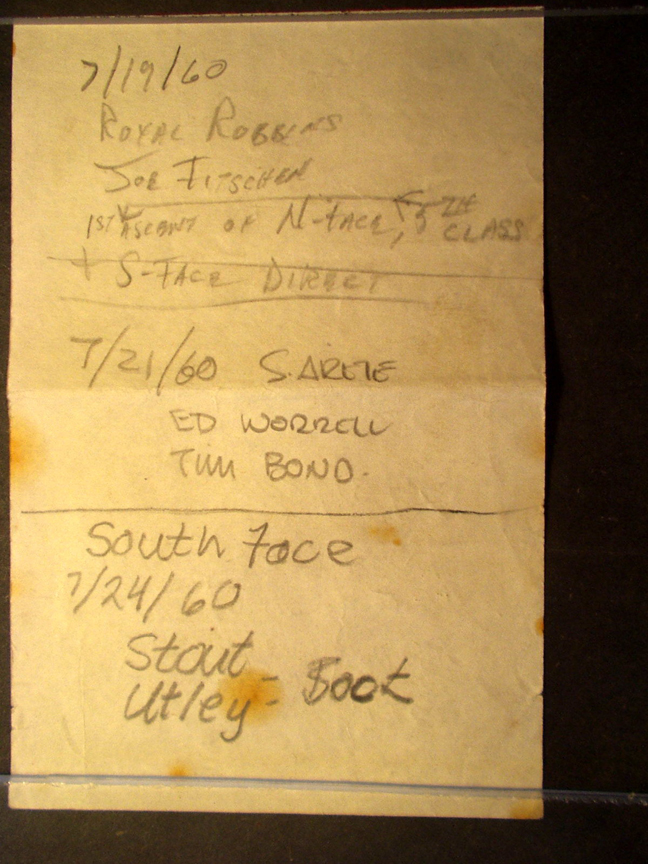 7/19/60
ROYAL ROBBINS
JOE FITSCHEN
1ST ASCENT OF N-FACE, 5TH CLASS
+ S-FACE DIRECT
7/21/60 S. ARETE
ED WORRELL
TIM BOND.
South Face
7/24/60
Stout
Utley - Boot